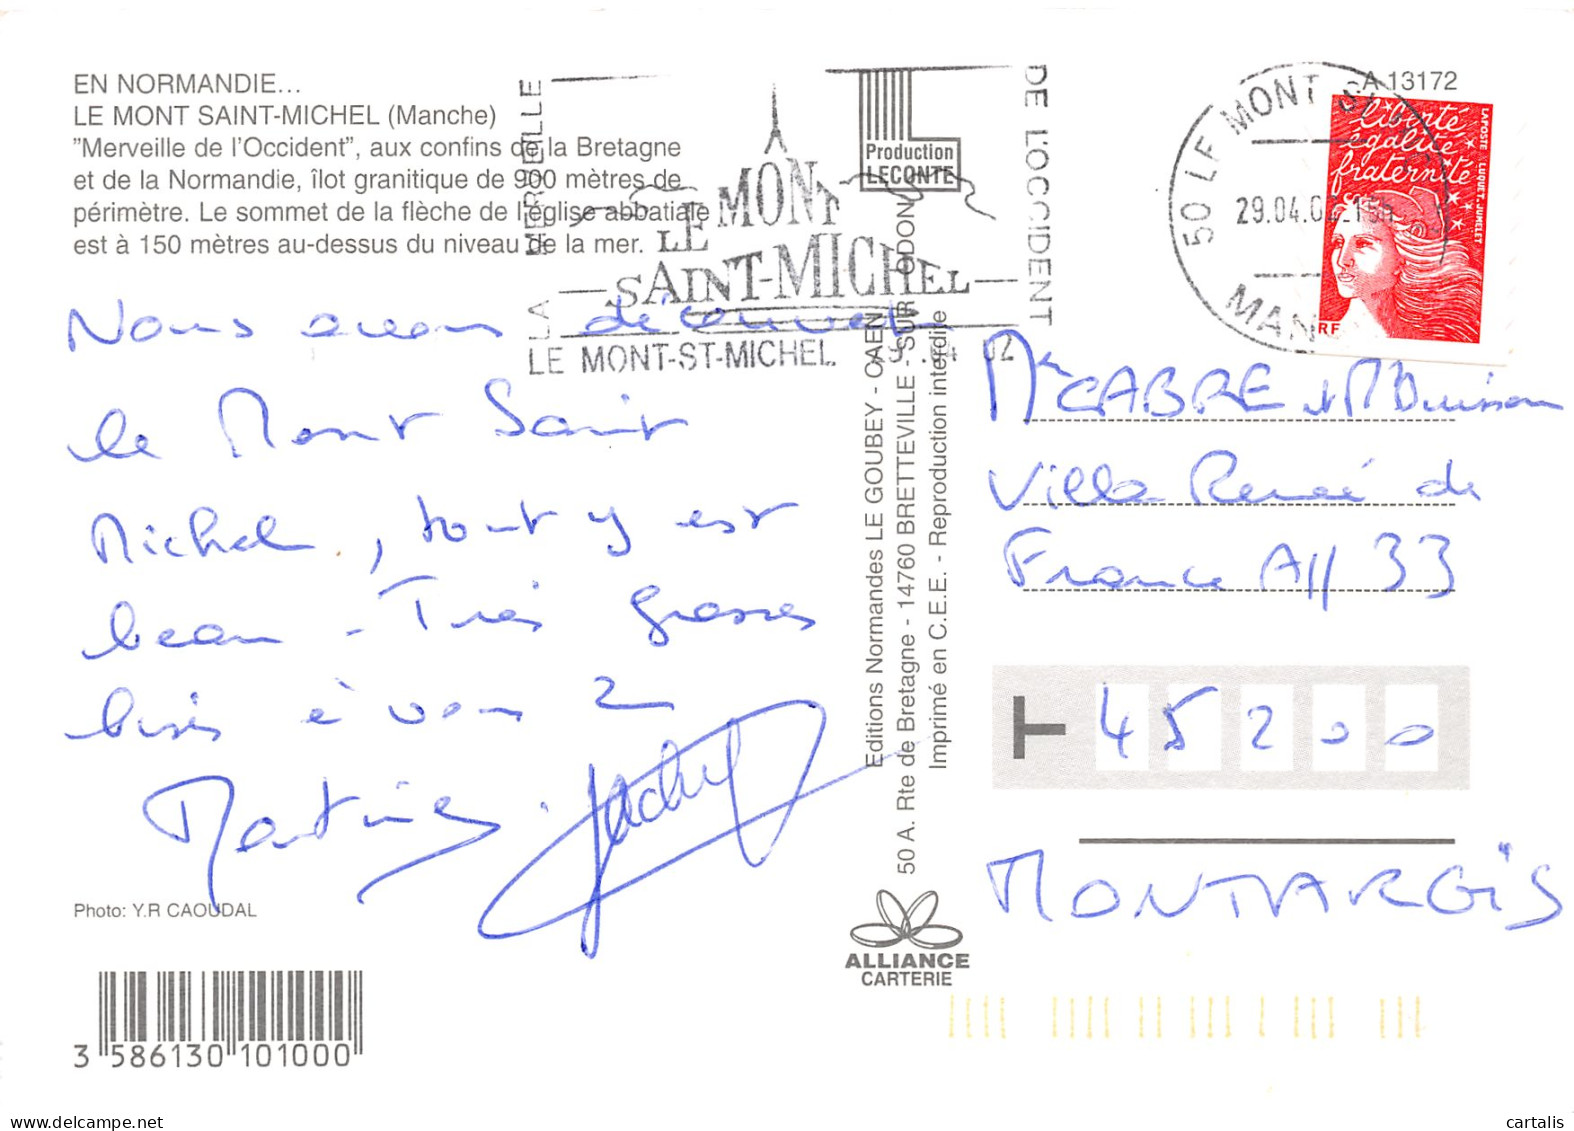 EN NORMANDIE...
LE MONT SAINT-MICHEL (Manche)
"Merveille de l'Occident", aux confins de la Bretagne
et de la Normandie, îlot granitique de 900 mètres de
périmètre. Le sommet de la flèche de l'église abbatiale
est à 150 mètres au-dessus du niveau de la mer.
LA MERVEILLE
LE MONT
SAINT-MICHEL
DE L'OCCIDENT
LE MONT-ST-MICHEL 29.04 02
Production
LECONTE
A 13172
50 LE MONT ST
29.04.0
MAN
liberté
égalité
fraternité
LAPOSTE LUQUET-JUMELET
RF
Nous avons découvert
le Mont Saint
Michel, tout y est
beau - Très grosses
bises à vous 2
Martine.
Photo: Y.R CAOUDAL
3 586130 101000
Editions Normandes LE GOUBEY - CAEN
50 A. Rte de Bretagne - 14760 BRETTEVILLE - SUR ODON
Imprimé en C.E.E. - Reproduction interdite
ALLIANCE
CARTERIE
Mr CABRE et M Buisson
Villa Renée de
France All 33
45200
MONTARGIS
cartalis
delcampe.net